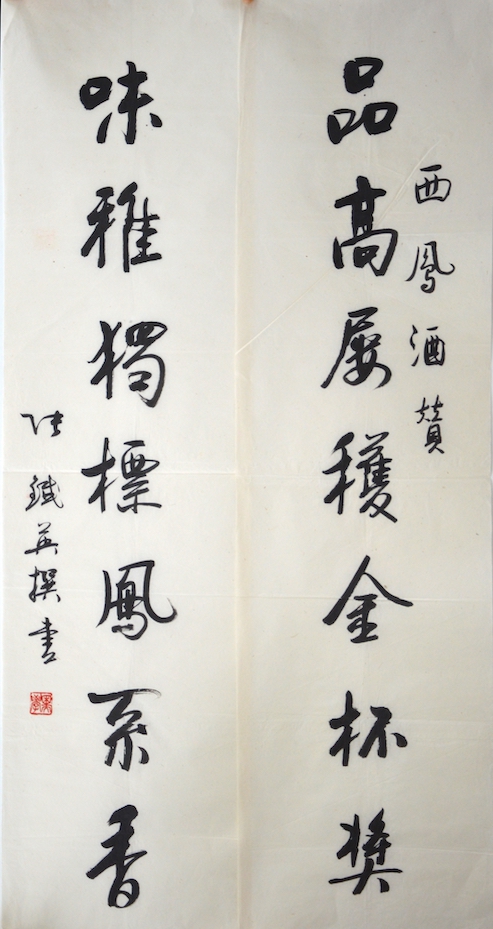 西鳳酒賛
品高屢穫金杯獎
味雅獨標鳳系香
張鐵英撰書